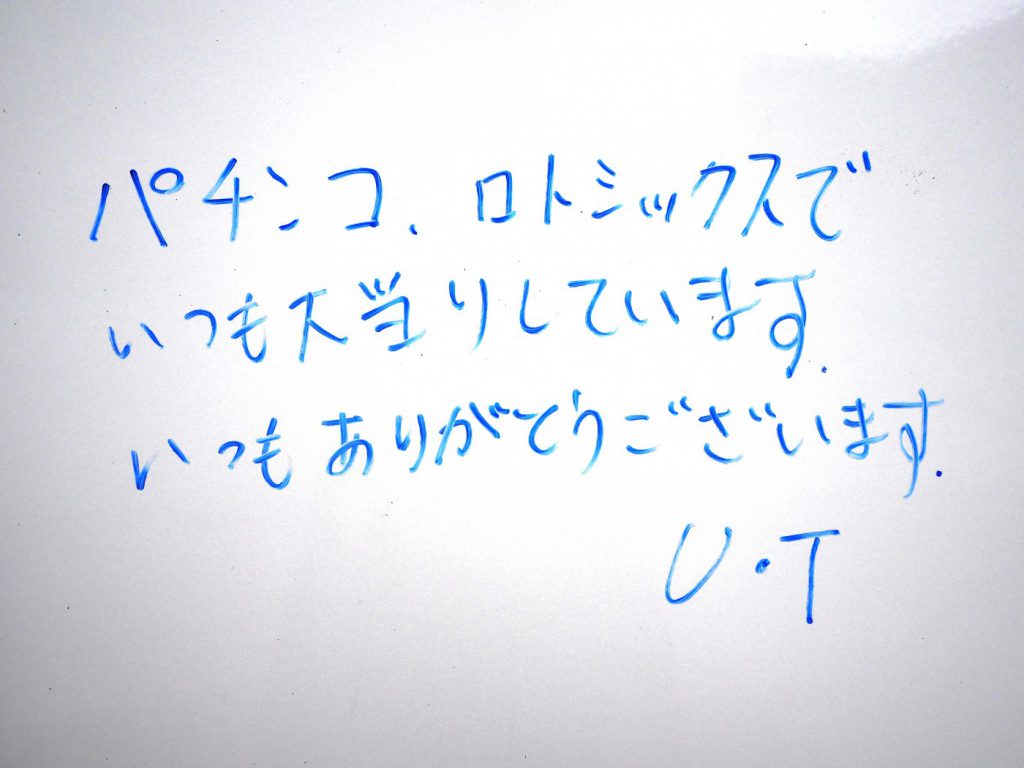 パチンコ、ロトシックスで
いつも大当りしています.
いつもありがとうございます.
U・T